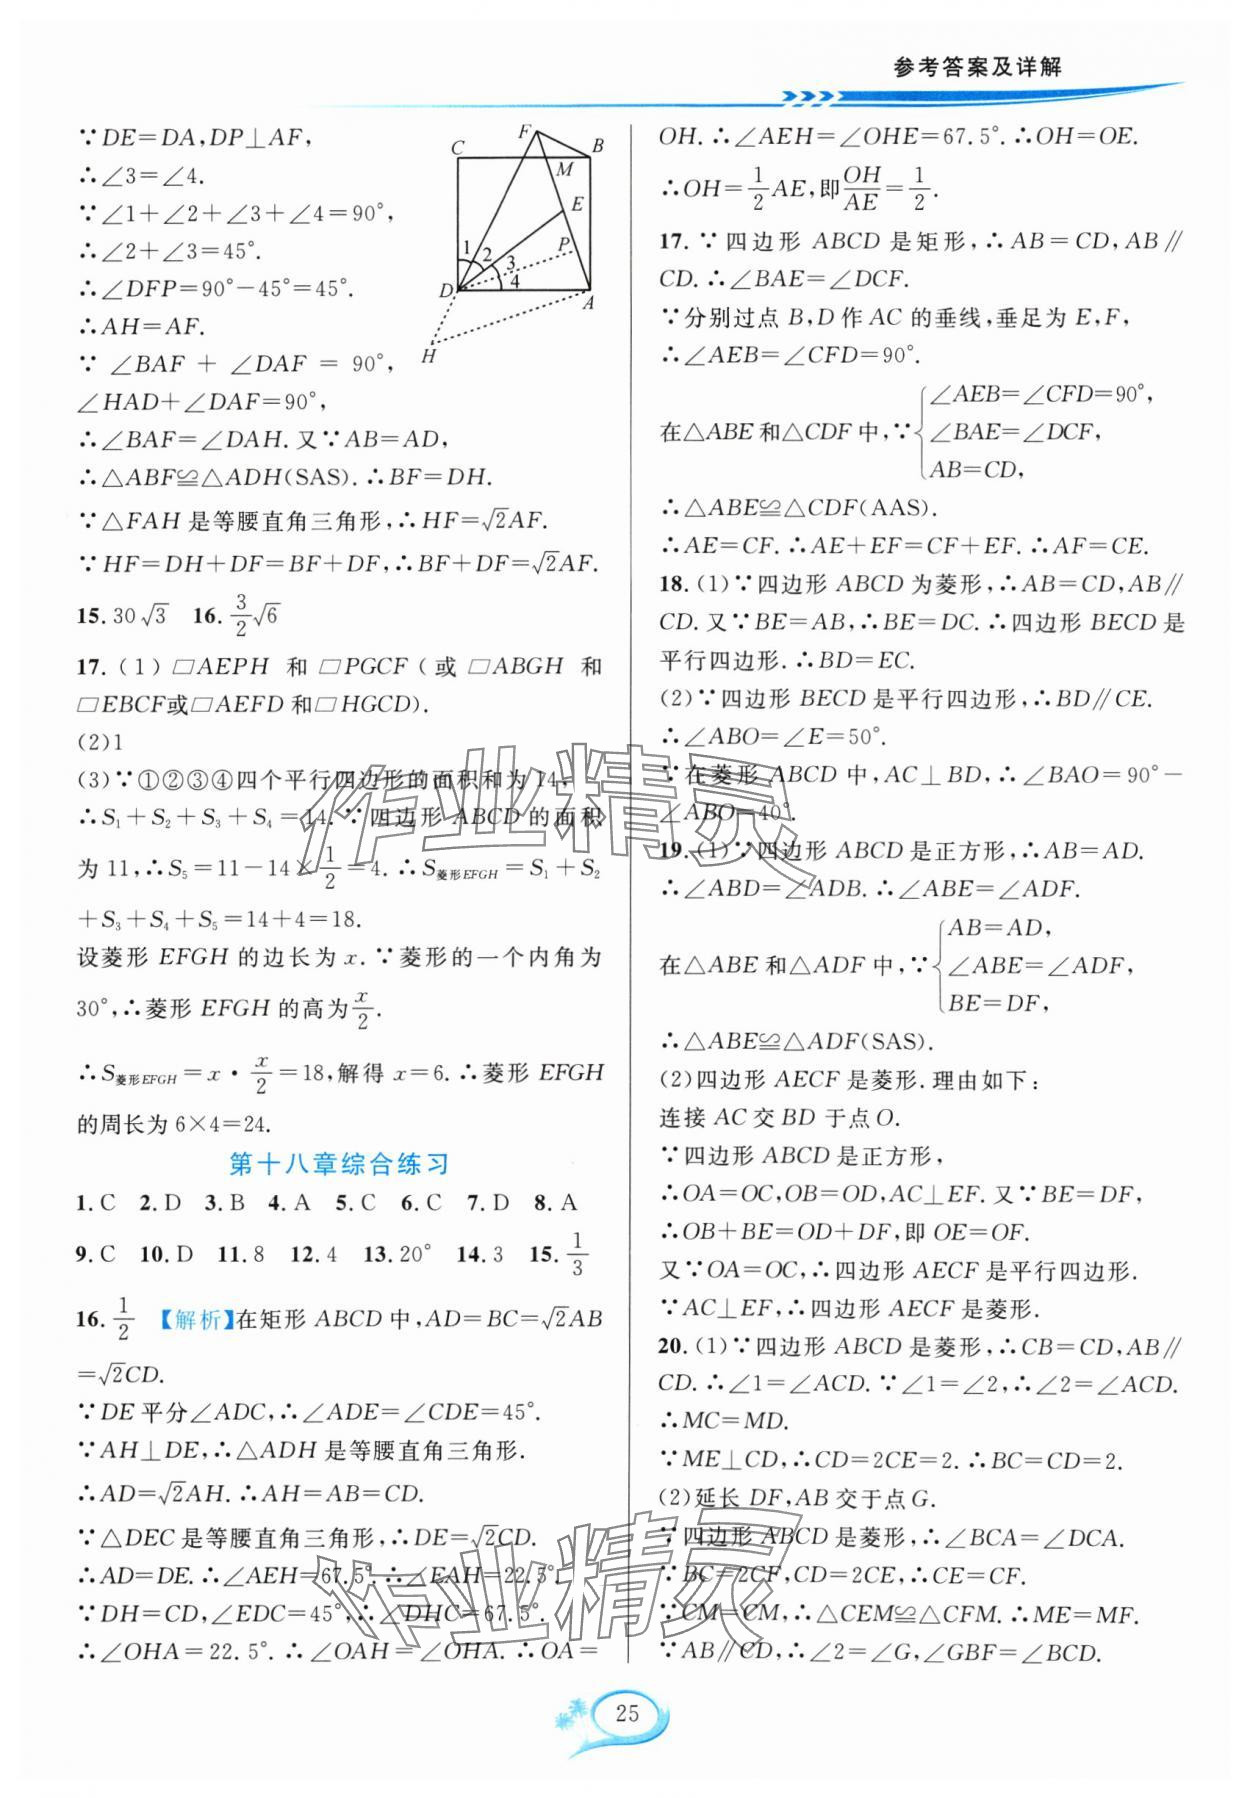 参考答案及详解
∵DE=DA,DP⊥AF,
∴∠3=∠4.
∵∠1+∠2+∠3+∠4=90°,
∴∠2+∠3=45°.
∴∠DFP=90°-45°=45°.
∴AH=AF.
∵∠BAF+∠DAF=90°,
∠HAD+∠DAF=90°,
∴∠BAF=∠DAH.又∵AB=AD,
∴△ABF≌△ADH(SAS).∴BF=DH.
∵△FAH是等腰直角三角形,∴HF=√2AF.
∵HF=DH+DF=BF+DF,∴BF+DF=√2AF.
F
C
B
M
E
P
1
2
3
4
D
A
H
15.30√3 16.3/2√6
17.(1)▱AEPH 和 ▱PGCF(或 ▱ABGH 和
▱EBCF或▱AEFD和▱HGCD).
(2)1
(3)∵①②③④四个平行四边形的面积和为14,
∴S₁+S₂+S₃+S₄=14.∵四边形ABCD的面积
为11,∴S₅=11-14×1/2=4.∴S菱形EFGH=S₁+S₂
+S₃+S₄+S₅=14+4=18.
设菱形EFGH的边长为x.∵菱形的一个内角为
30°,∴菱形EFGH的高为x/2.
∴S菱形EFGH=x·x/2=18,解得x=6.∴菱形EFGH
的周长为6×4=24.
第十八章综合练习
1.C 2.D 3.B 4.A 5.C 6.C 7.D 8.A
9.C 10.D 11.8 12.4 13.20° 14.3 15.1/3
16.1/2 【解析】在矩形ABCD中,AD=BC=√2AB
=√2CD.
∵DE平分∠ADC,∴∠ADE=∠CDE=45°.
∵AH⊥DE,∴△ADH是等腰直角三角形.
∴AD=√2AH.∴AH=AB=CD.
∵△DEC是等腰直角三角形,∴DE=√2CD.
∴AD=DE.∴∠AEH=67.5°.∴∠EAH=22.5°.
∵DH=CD,∠EDC=45°,∴∠DHC=67.5°.
∴∠OHA=22.5°.∴∠OAH=∠OHA.∴OA=
OH.∴∠AEH=∠OHE=67.5°.∴OH=OE.
∴OH=1/2AE,即OH/AE=1/2.
17.∵四边形ABCD是矩形,∴AB=CD,AB∥
CD.∴∠BAE=∠DCF.
∵分别过点B,D作AC的垂线,垂足为E,F,
∴∠AEB=∠CFD=90°.
在△ABE和△CDF中,∵{∠AEB=∠CFD=90°,
∠BAE=∠DCF,
AB=CD,
∴△ABE≌△CDF(AAS).
∴AE=CF.∴AE+EF=CF+EF.∴AF=CE.
18.(1)∵四边形ABCD为菱形,∴AB=CD,AB∥
CD.又∵BE=AB,∴BE=DC.∴四边形BECD是
平行四边形.∴BD=EC.
(2)∵四边形BECD是平行四边形,∴BD∥CE.
∴∠ABO=∠E=50°.
∵在菱形ABCD中,AC⊥BD,∴∠BAO=90°-
∠ABO=40°.
19.(1)∵四边形ABCD是正方形,∴AB=AD.
∴∠ABD=∠ADB.∴∠ABE=∠ADF.
在△ABE和△ADF中,∵{AB=AD,
∠ABE=∠ADF,
BE=DF,
∴△ABE≌△ADF(SAS).
(2)四边形AECF是菱形.理由如下:
连接AC交BD于点O.
∵四边形ABCD是正方形,
∴OA=OC,OB=OD,AC⊥EF.又∵BE=DF,
∴OB+BE=OD+DF,即OE=OF.
又∵OA=OC,∴四边形AECF是平行四边形.
∵AC⊥EF,∴四边形AECF是菱形.
20.(1)∵四边形ABCD是菱形,∴CB=CD,AB∥
CD.∴∠1=∠ACD.∵∠1=∠2,∴∠2=∠ACD.
∴MC=MD.
∵ME⊥CD,∴CD=2CE=2.∴BC=CD=2.
(2)延长DF,AB交于点G.
∵四边形ABCD是菱形,∴∠BCA=∠DCA.
∵BC=2CF,CD=2CE,∴CE=CF.
∵CM=CM,∴△CEM≌△CFM.∴ME=MF.
∵AB∥CD,∴∠2=∠G,∠GBF=∠BCD.
25
作业精灵
作业精灵